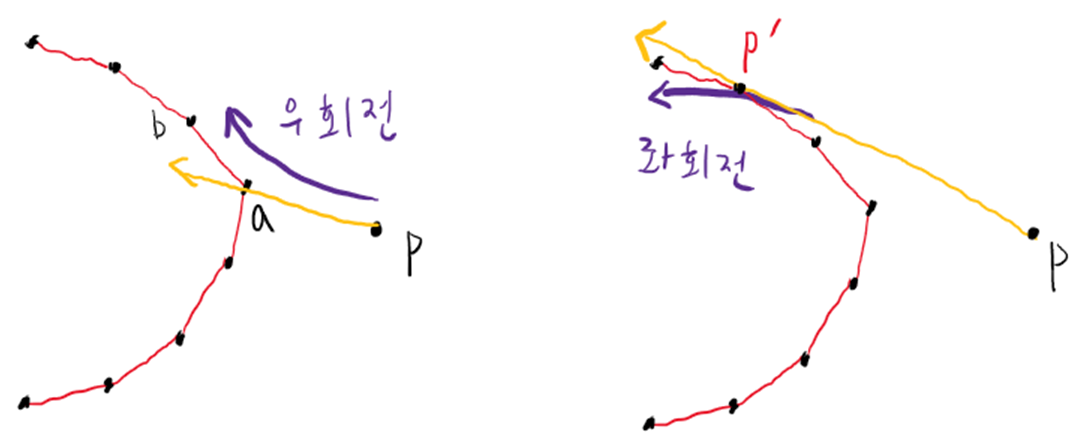 b
우회전
a
P
P'
좌회전
P